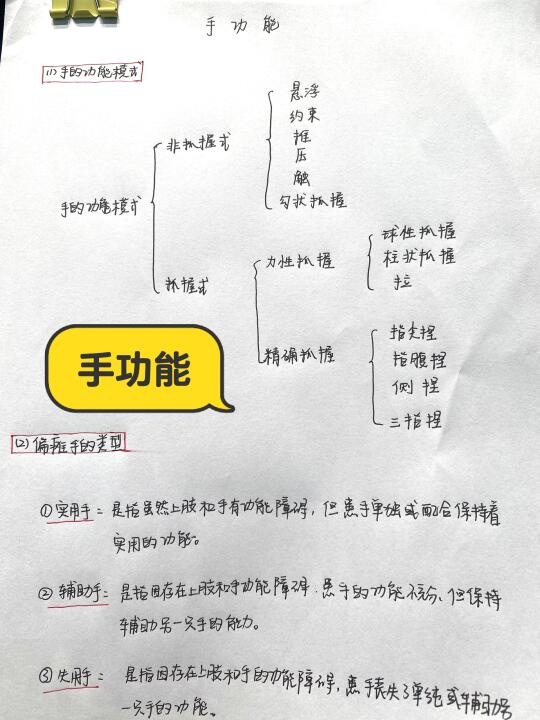 手功能
(1)手的功能模式
手的功能模式
非抓握式
悬浮
约束
推
压
触
勾状抓握
抓握式
力性抓握
球性抓握
柱状抓握
拉
精确抓握
指尖捏
指腹捏
侧捏
三指捏
手功能
(2)偏瘫手的类型
①实用手：是指虽然上肢和手有功能障碍，但患手单独或配合保持着
实用的功能。
②辅助手：是指因存在上肢和手功能障碍，患手的功能不分，但保持
辅助另一只手的能力。
③失用手：是指因存在上肢和手的功能障碍，患手丧失了单纯或辅助另
一只手的功能。